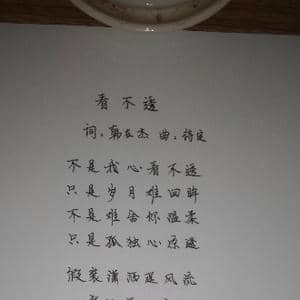 看不透
词：韩立杰 曲：待定
不是我心看不透
只是岁月难回眸
不是难舍你温柔
只是孤独心凉透
假装潇洒逞风流